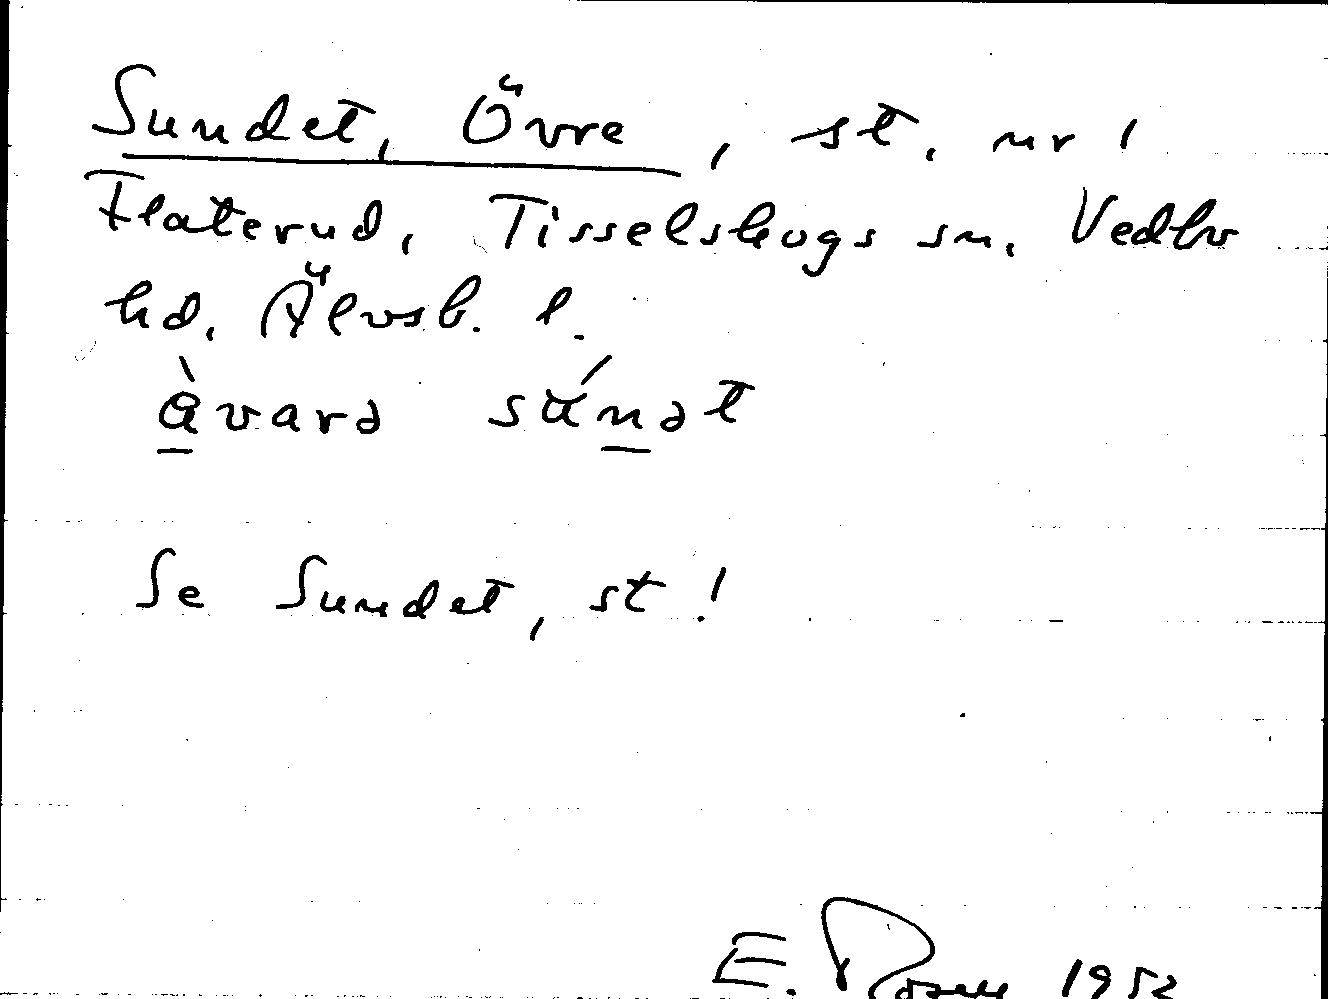 Sundet, Övre, st. nr 1
Flaterud, Tisselskogs sn. Vedbo
hd. Älvsb. l.
àvarə súnət
Se Sundet, st!
E. Rosell 1952